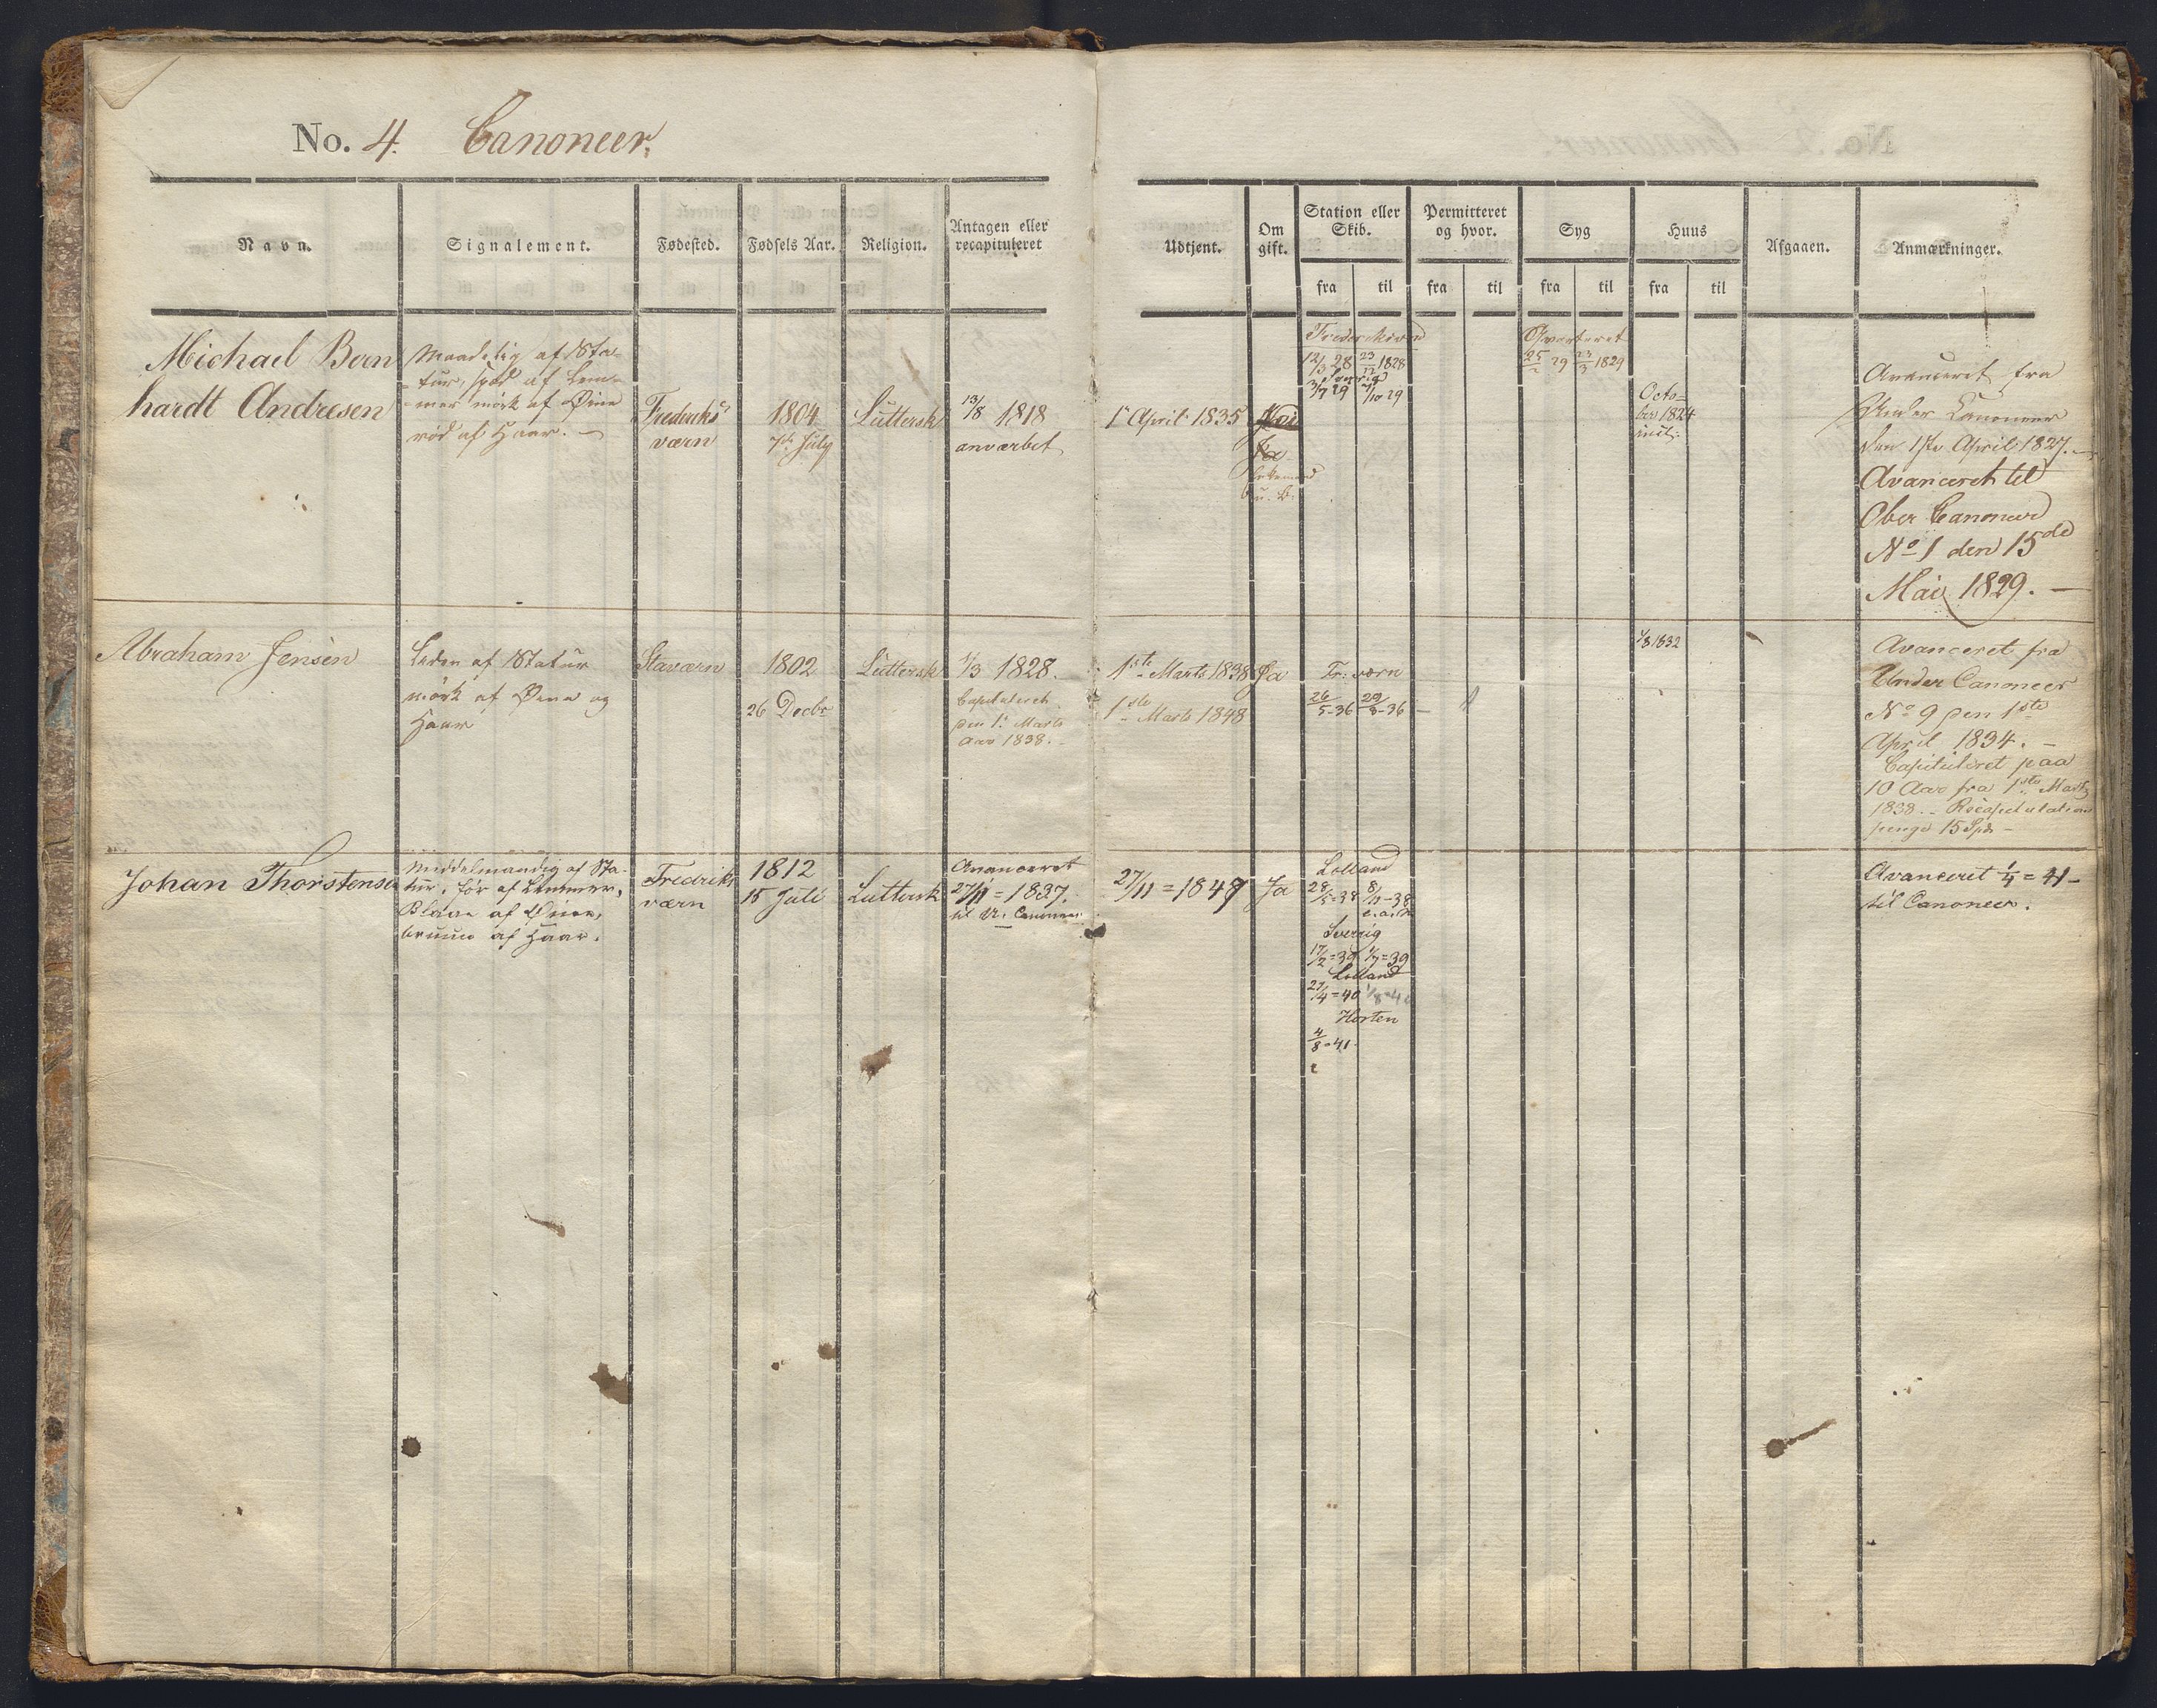 No. 4. Canoneer.
Navn.
Signalement.
Fødested.
Fødsels Aar.
Religion.
Antagen eller
recapituleret
Udtjent.
Om
gift.
Station eller
Skib.
Permitteret
og hvor.
Syg
Huus
Afgaaen.
Anmærkninger.
fra til fra til fra til fra til
Michael Bern
hardt Andresen
Maadelig af Sta-
tur, spæd af Lem-
mer mörk af Øine
röd af Haar. —
Frederiks
værn
1804
7de July
Luttersk
13/8 1818
anværbet
1te April 1835
Nei
Ja
Frederiksværn
12/3 28 23/12 1828
Sverrig
3/7 29 7/10 29
Qvarteret
25/2 29 23/3 1829
Octo-
ber 1824
Avanceret fra
Under Canoneer
den 1ste April 1827. —
Avanceret til
Ober Canoneer
No 1 den 15de
Mai 1829. —
Abraham Jensen
Liden af Statur
mörk af Øine og
Haar
Staværn
1802
26 Decbr
Luttersk
1/3 1828.
Capituleret
den 1e Marts
Aar 1838. —
1ste Marts 1838
1ste Marts 1848
Ja
Fr: værn
26/5-36 29/8-36 —
1/8 1832
Avanceret fra
Under Canoneer
No 9 den 1ste
April 1834. —
Capituleret paa
10 Aar fra 1ste Marts
1838. — Recapitulations
penge 15 Spd —
Johan Thorstensen
Middelmaadig af Sta-
tur, för af Lemmer,
Blaae af Øine,
bruun af Haar.
Fredriks
værn
1812
15 Juli
Luttersk
Avanceret
27/11 = 1837.
til U. Canoneer
27/11 = 1847
Ja
Lolland
28/5=38 8/11-38
Sverrig
17/2=39 1/7=39
Lolland
27/4=40 1/8-40
Horten
4/8-41
Avanceret 1/4 = 41 —
til Canoneer.